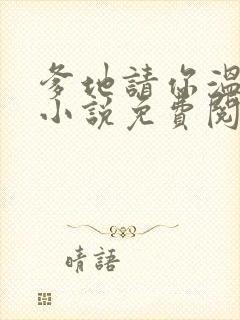 爹地請你溫
小說免費閱
晴語